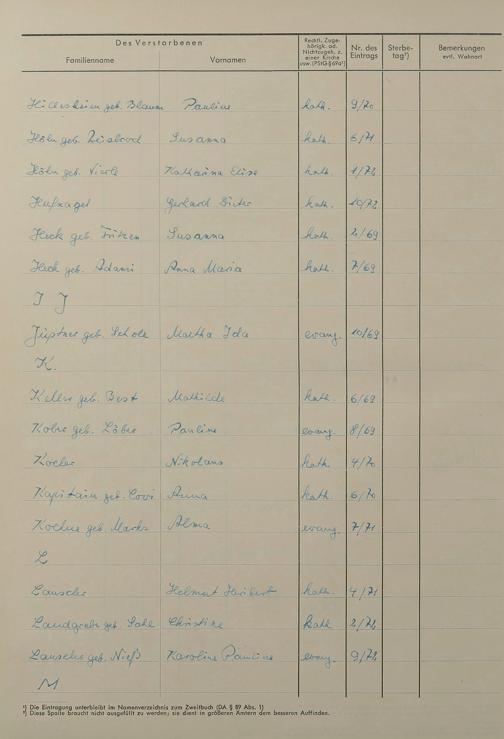 Des Verstorbenen
Familienname Vornamen Rechtl. Zugehörigk. od. Nichtzugeh. z. einer Kirche usw. (PStG § 69a¹) Nr. des Eintrags Sterbetag²) Bemerkungen evtl. Wohnort
geb. Blaum Pauline kath. 9/70
Höhn geb. Susanna kath. 6/71
Höhn geb. Katharina Elise kath. 1/72
Hufnagel Gerhard Dieter kath. 10/72
Heck geb. Susanna kath. 2/69
Heck geb. Adami Anna Maria kath. 7/69
I J
Jüstner geb. Scholz Martha Ida evang. 10/69
K.
Keller geb. Best Mathilde kath. 6/69
geb. Pauline evang. 8/69
Nikolaus kath. 4/70
Kapitain geb. Anna kath. 6/70
geb. Marks Alma evang. 7/71
L
Lauscher Helmut Heribert kath. 4/71
Landgrebe geb. Christine kath. 2/72
Lauscher geb. Nieß Karoline Pauline evang. 9/72
M
¹) Die Eintragung unterbleibt im Namenverzeichnis zum Zweitbuch (DA § 89 Abs. 1)
²) Diese Spalte braucht nicht ausgefüllt zu werden; sie dient in größeren Ämtern dem besseren Auffinden.